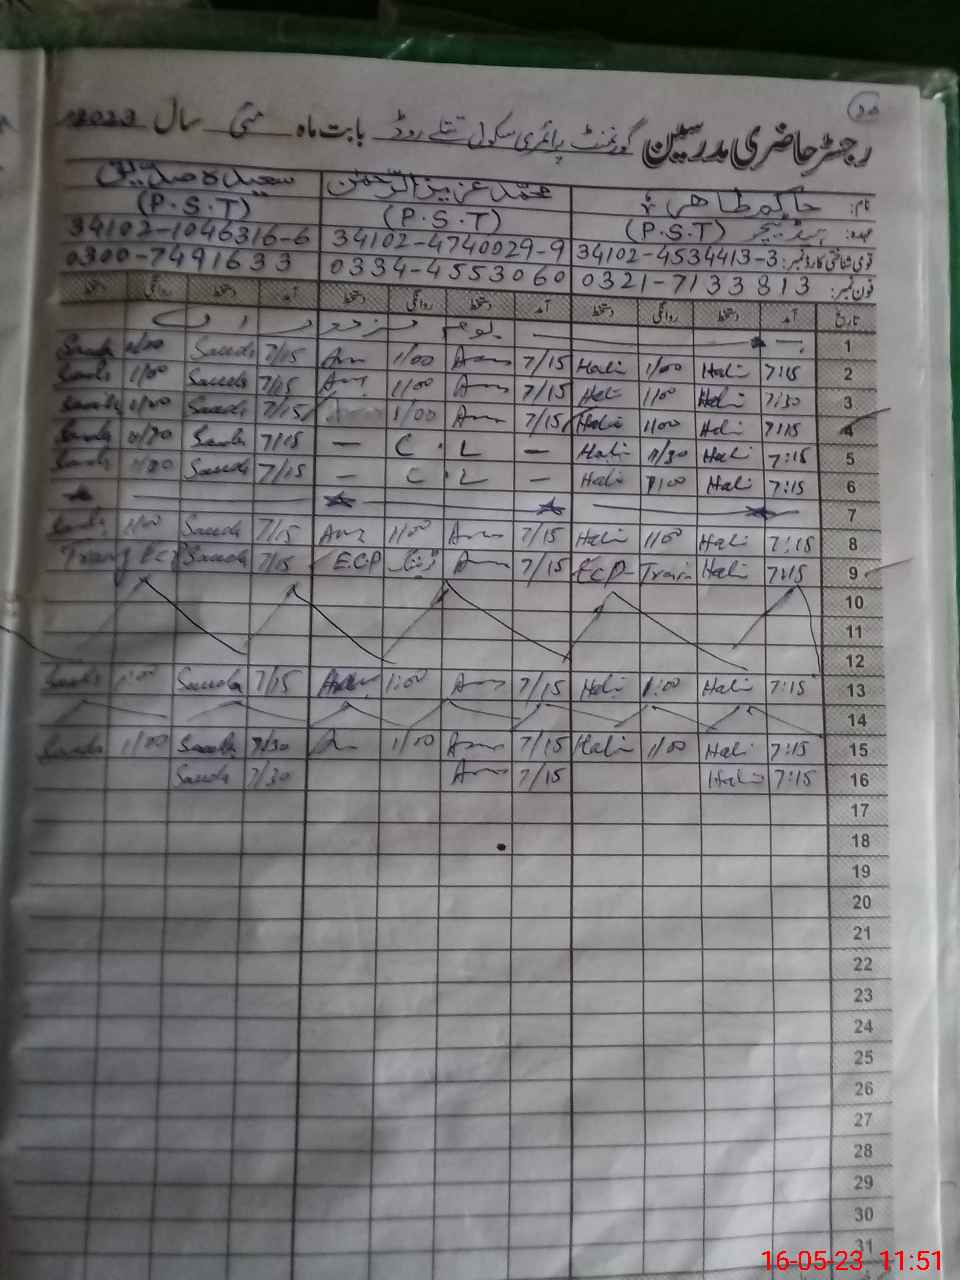 20
رجسٹر حاضری مدرسین گورنمنٹ پرائمری سکول تتلے روڈ بابت ماہ مئی سال 2023
نام: محمد عزیز الرحمٰن سعیدہ صدیق
عہدہ: ہیڈ ٹیچر (P.S.T) (P.S.T) (P.S.T)
قومی شناختی کارڈ نمبر: 34102-4534413-3 34102-4740029-9 34102-1046316-6
فون نمبر: 0321-7133813 0334-4553060 0300-7491633
تاریخ آمد دستخط روانگی دستخط آمد دستخط روانگی دستخط آمد دستخط روانگی دستخط
1 یوم مزدور
2 7:15 Hali 1/00 Hali 7/15 Am 1/00 Am 7/15 Saeeda 1/00
3 7/30 Hali 1/00 Hali 7/15 Am 1/00 Am 7/15 Saeeda 1/00
4 7:15 Hali 1/00 Hali 7/15 Am 1/00 7/15 Saeeda 1/00
5 7:15 Hali 11/30 Hali — C.L — 7/15 Saeeda
6 7:15 Hali 1:00 Hali — C.L — 7/15 Saeeda
7
8 7:15 Hali 1/00 Hali 7/15 Am 1/00 Am 7/15 Saeeda 1/00
9 7:15 Hali Train ECP 7/15 Am ٹریننگ E.C.P 7/15 Saeeda
10
11
12
13 7:15 Hali 1:00 Hali 7/15 Am 1:00 Am 7/15 Saeeda 1:00
14
15 7:15 Hali 1/00 Hali 7/15 Am 1/00 Am 7/30 Saeeda 1/00
16 7:15 Hali 7/15 Am 7/30 Saeeda
17
18
19
20
21
22
23
24
25
26
27
28
29
30
31
16-05-23 11:51